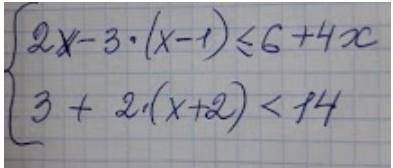 2x-3·(x-1)≤6+4x
3 + 2·(x+2) < 14